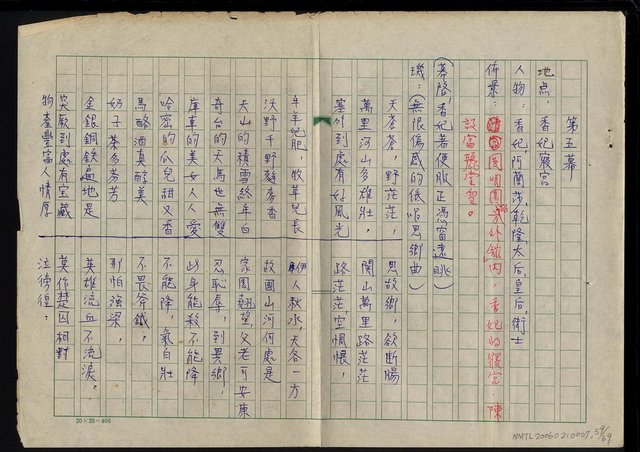 第五幕
地点：香妃寢宮
人物：香妃阿蘭莎，乾隆太后，皇后，術士
佈景：圓明園郊外館內，香妃的寢宮，陳
設富麗堂皇。
(幕啓，香妃著便服正憑窗遠眺)
璣：(無限傷感的低唱思鄉曲)
天蒼蒼，野茫茫， 思故鄉，欲斷腸
萬里河山多雄壯， 關山萬里路茫茫
塞外到處有好風光 路茫茫，空惆悵，
牛羊兒肥，牧草兒長 伊人秋水，天各一方
沃野千野麩麥香 故國山河何處是
天山的積雪終年白 家園翹望父老可安康
奇台的大馬世無雙 忍恥辱，到異鄉，
庫車的美女人人愛 此身能殺不能降
哈密的瓜兒甜又香 不能降，氣自壯
馬酪酒真醇美 不畏斧鉞，
奶子茶多芳芳 那怕強梁，
金銀銅鉄遍地是 英雄流血不流淚。
寞歐到處有宝藏 莫作楚囚相對
物產豐富人情厚 泣徬徨：
20×20=400
NMTL20060210007, 59/69